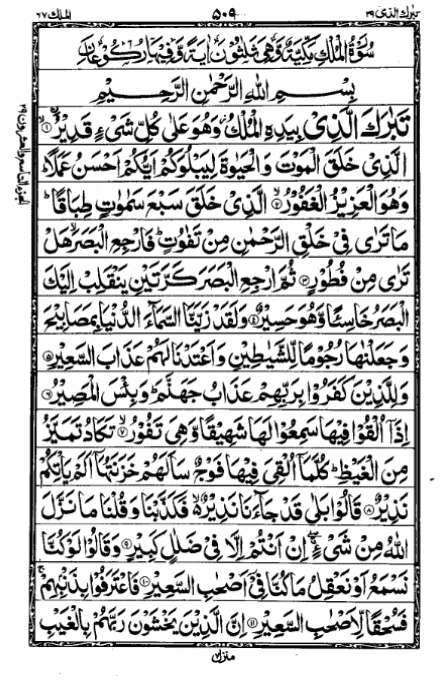 تبٰرك الذی ٢٩
٥٠٩
الملك ٦٧
سُوْرَةُ الْمُلْكِ مَكِّيَّةٌ وَّهِيَ ثَلٰثُوْنَ اٰيَةً وَّفِيْهَا رُكُوْعَانِ
بِسْمِ اللّٰهِ الرَّحْمٰنِ الرَّحِيْمِ
تَبٰرَكَ الَّذِیْ بِيَدِهِ الْمُلْكُ ۫ وَهُوَ عَلٰی كُلِّ شَیْءٍ قَدِيْرُۙ ۝١
الَّذِیْ خَلَقَ الْمَوْتَ وَالْحَيٰوةَ لِيَبْلُوَكُمْ اَيُّكُمْ اَحْسَنُ عَمَلًا ؕ
وَهُوَ الْعَزِيْزُ الْغَفُوْرُۙ ۝٢ الَّذِیْ خَلَقَ سَبْعَ سَمٰوٰتٍ طِبَاقًا ؕ
مَا تَرٰی فِیْ خَلْقِ الرَّحْمٰنِ مِنْ تَفٰوُتٍ ؕ فَارْجِعِ الْبَصَرَ ۙ هَلْ
تَرٰی مِنْ فُطُوْرٍ ۝٣ ثُمَّ ارْجِعِ الْبَصَرَ كَرَّتَيْنِ يَنْقَلِبْ اِلَيْكَ
الْبَصَرُ خَاسِئًا وَّهُوَ حَسِيْرٌ ۝٤ وَلَقَدْ زَيَّنَّا السَّمَآءَ الدُّنْيَا بِمَصَابِيْحَ
وَجَعَلْنٰهَا رُجُوْمًا لِّلشَّيٰطِيْنِ وَاَعْتَدْنَا لَهُمْ عَذَابَ السَّعِيْرِ ۝٥
وَلِلَّذِيْنَ كَفَرُوْا بِرَبِّهِمْ عَذَابُ جَهَنَّمَ ؕ وَبِئْسَ الْمَصِيْرُ ۝٦
اِذَاۤ اُلْقُوْا فِيْهَا سَمِعُوْا لَهَا شَهِيْقًا وَّهِیَ تَفُوْرُۙ ۝٧ تَكَادُ تَمَيَّزُ
مِنَ الْغَيْظِ ؕ كُلَّمَاۤ اُلْقِیَ فِيْهَا فَوْجٌ سَاَلَهُمْ خَزَنَتُهَاۤ اَلَمْ يَاْتِكُمْ
نَذِيْرٌ ۝٨ قَالُوْا بَلٰی قَدْ جَآءَنَا نَذِيْرٌ ۙ فَكَذَّبْنَا وَقُلْنَا مَا نَزَّلَ
اللّٰهُ مِنْ شَیْءٍ ۖ اِنْ اَنْتُمْ اِلَّا فِیْ ضَلٰلٍ كَبِيْرٍ ۝٩ وَقَالُوْا لَوْ كُنَّا
نَسْمَعُ اَوْ نَعْقِلُ مَا كُنَّا فِیْۤ اَصْحٰبِ السَّعِيْرِ ۝١٠ فَاعْتَرَفُوْا بِذَنْۢبِهِمْ ۚ
فَسُحْقًا لِّاَصْحٰبِ السَّعِيْرِ ۝١١ اِنَّ الَّذِيْنَ يَخْشَوْنَ رَبَّهُمْ بِالْغَيْبِ
الجزء التاسع والعشرون ٢٩